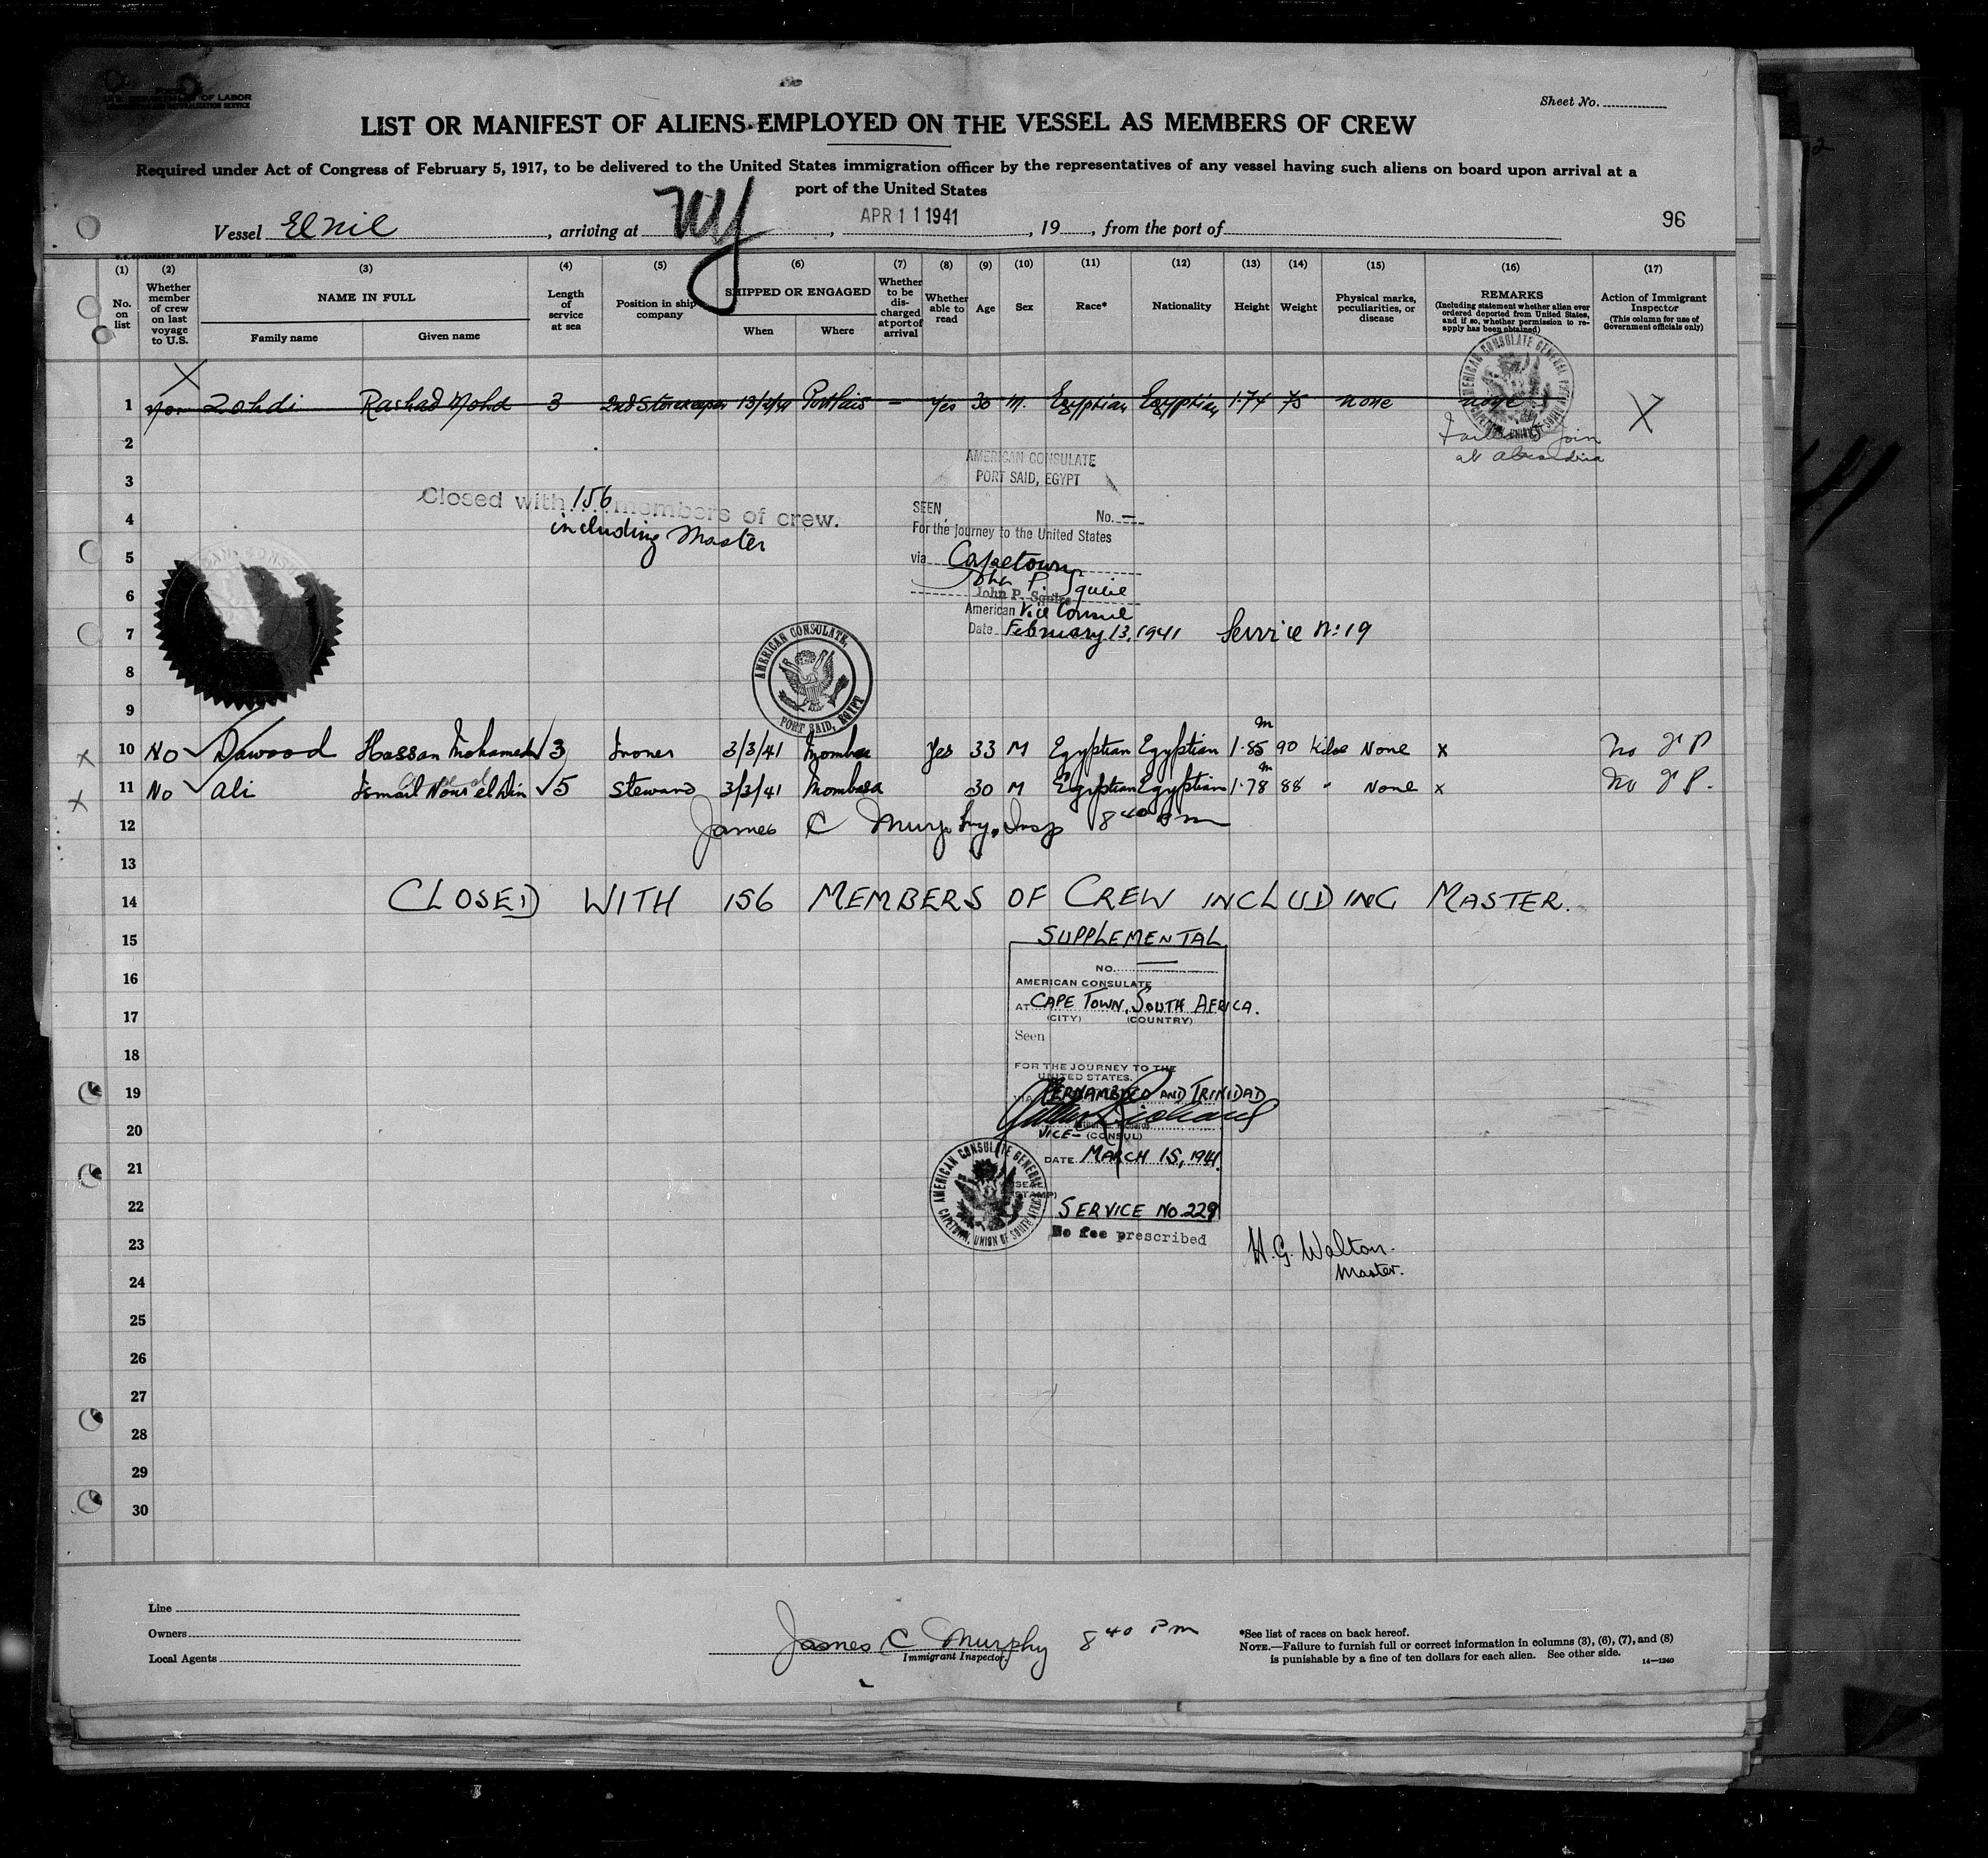 U.S. DEPARTMENT OF LABOR
Sheet No.
LIST OR MANIFEST OF ALIENS EMPLOYED ON THE VESSEL AS MEMBERS OF CREW
Required under Act of Congress of February 5, 1917, to be delivered to the United States immigration officer by the representatives of any vessel having such aliens on board upon arrival at a
port of the United States
Vessel El Nil, arriving at NY, APR 11 1941, 19, from the port of
96
(1) (2) (3) (4) (5) (6) (7) (8) (9) (10) (11) (12) (13) (14) (15) (16) (17)
No. on list
Whether member of crew on last voyage to U.S.
NAME IN FULL
Family name
Given name
Length of service at sea
Position in ship company
SHIPPED OR ENGAGED
When
Where
Whether to be discharged at port of arrival
Whether able to read
Age
Sex
Race*
Nationality
Height
Weight
Physical marks, peculiarities, or disease
REMARKS
(Including statement whether alien ever ordered deported from United States, and if so, whether permission to reapply has been obtained)
Action of Immigrant Inspector
(This column for use of Government officials only)
X
1 Zohdi Rashad Mohd 3 2nd Storekeeper — Yes 30 M. Egyptian Egyptian 1.74 75 none none X
AMERICAN CONSULATE GENERAL
CAPETOWN, UNION OF SOUTH AFRICA
Failed to join
at Alexandria
2
AMERICAN CONSULATE
3
PORT SAID, EGYPT
Closed with 156 members of crew.
including Master
SEEN No. —
4
For the journey to the United States
5
via Capetown
John P. Squire
6
John P. Squire
American Vice Consul
7
Date February 13, 1941 Service No: 19
AMERICAN CONSULATE,
PORT SAID, EGYPT
8
9
x 10 No Dawood Hassan Mohamed 3 3/3/41 Yes 33 M Egyptian Egyptian 1.85 m 90 Kilos None x
x 11 No Ali Ismail Nour el Din 5 Steward 3/3/41 Mombasa 30 M Egyptian Egyptian 1.78 m 88 " None x
12 James C 8 40 pm
13
14 CLOSED WITH 156 MEMBERS OF CREW INCLUDING MASTER.
15 SUPPLEMENTAL
NO. —
16 AMERICAN CONSULATE
AT CAPE TOWN, SOUTH AFRICA.
17 (CITY) (COUNTRY)
Seen
18
FOR THE JOURNEY TO THE
UNITED STATES.
19 VIA PERNAMBUCO AND TRINIDAD
20 VICE- (CONSUL)
21 DATE MARCH 15, 1941.
(SEAL STAMP)
AMERICAN CONSULATE GENERAL
CAPETOWN, UNION OF SOUTH AFRICA
22 SERVICE NO. 229
No fee prescribed
23 H. G. Walton.
Master.
24
25
26
27
28
29
30
Line
Owners
Local Agents
James C Murphy 8 40 PM
Immigrant Inspector.
*See list of races on back hereof.
NOTE.—Failure to furnish full or correct information in columns (3), (6), (7), and (8)
is punishable by a fine of ten dollars for each alien. See other side. 14—1240